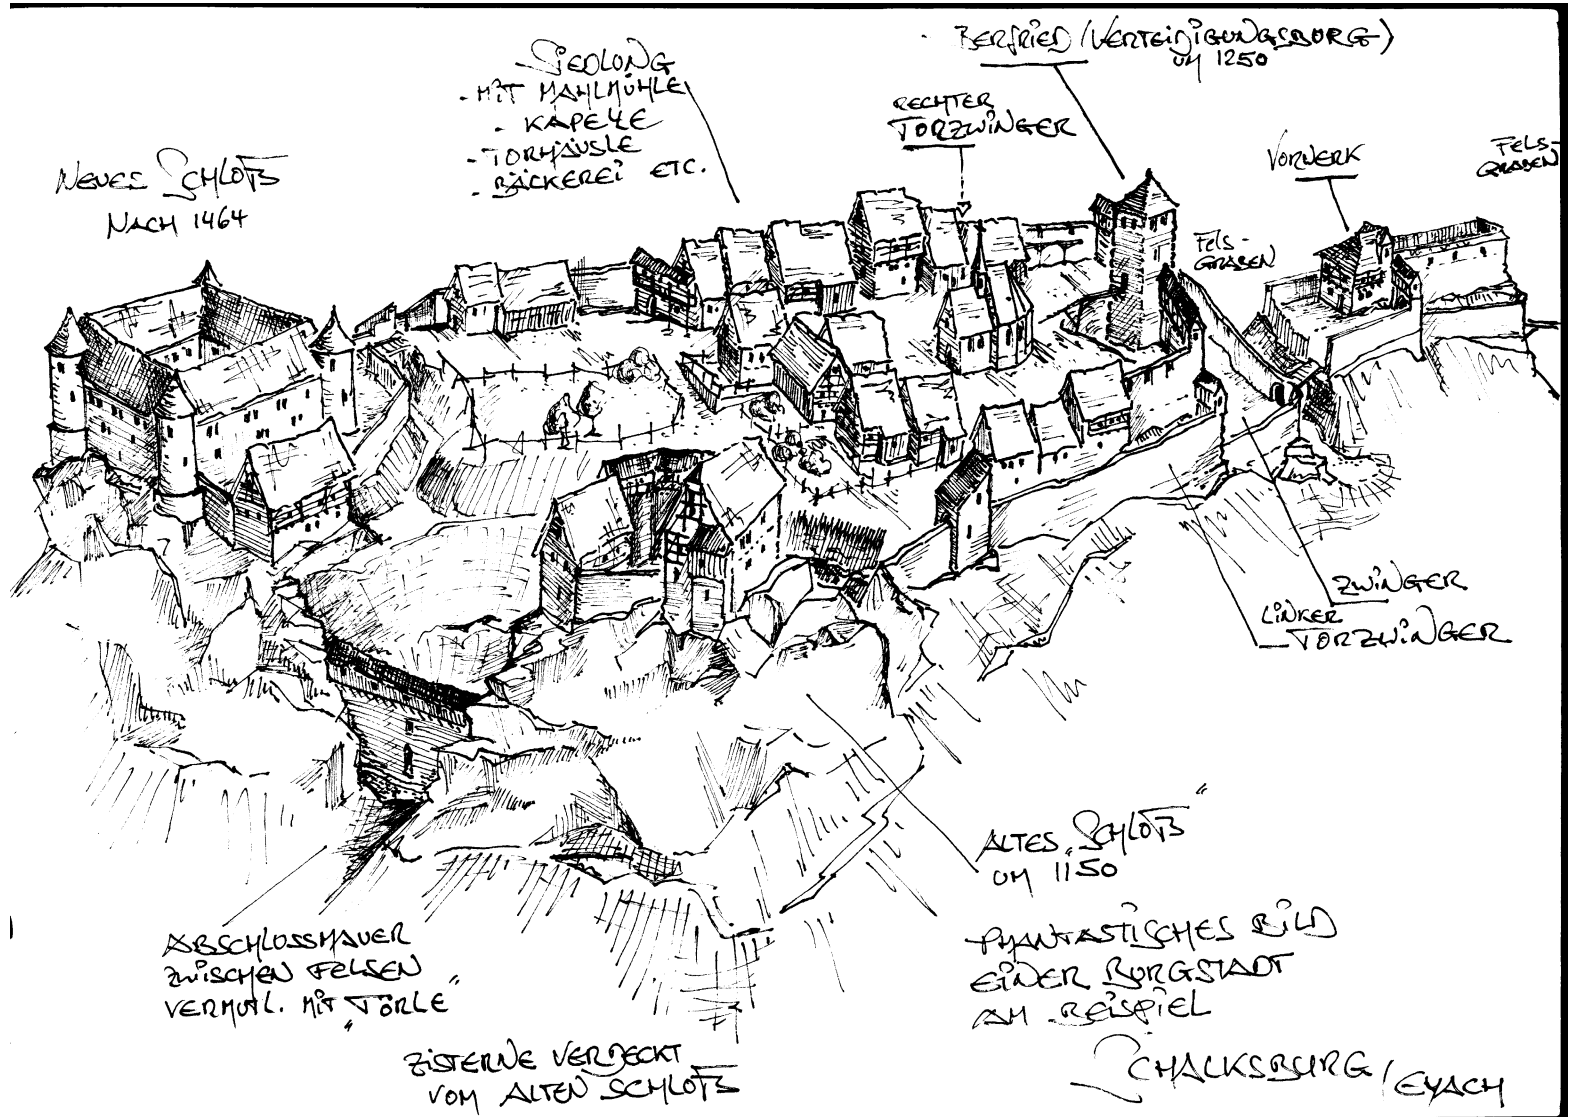 NEUES SCHLOß
NACH 1464
SIEDLUNG
- MIT MAHLMÜHLE
- KAPELLE
- TORHÄUSLE
- BÄCKEREI ETC.
BERFRIED (VERTEIDIGUNGSBURG)
UM 1250
RECHTER
TORZWINGER
VORWERK
FELS-
GRABEN
FELS-
GRABEN
ZWINGER
LINKER
TORZWINGER
ALTES „SCHLOß“
UM 1150
ABSCHLOSSMAUER
ZWISCHEN FELSEN
VERMUTL. MIT „TÖRLE“
ZISTERNE VERDECKT
VOM ALTEN SCHLOß
PHANTASTISCHES BILD
EINER BURGSTADT
AM BEISPIEL
SCHALKSBURG / EYACH